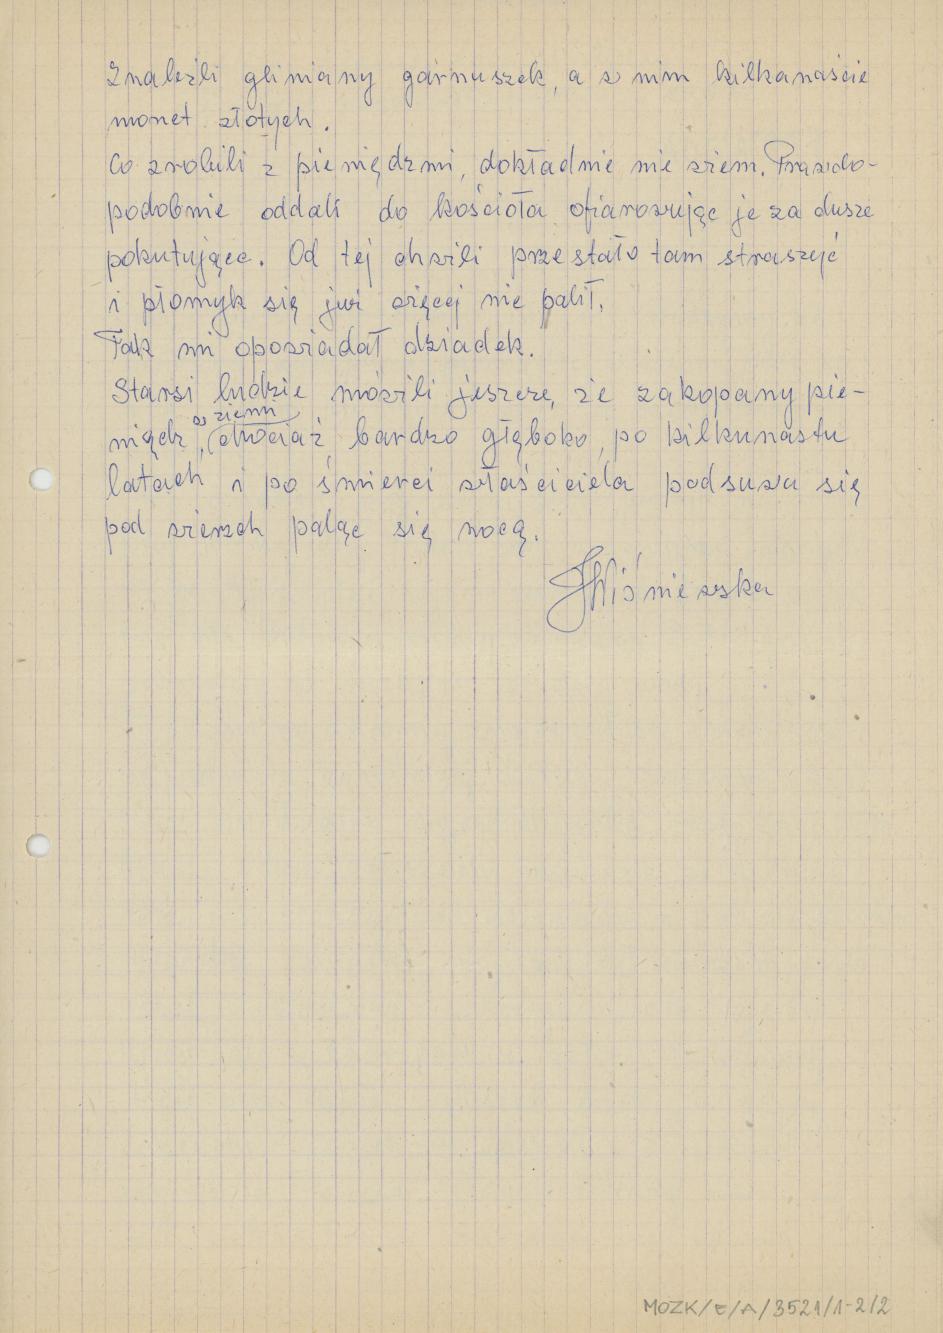 Znaleźli gliniany garnuszek, a w nim kilkanaście
monet złotych.
Co zrobili z pieniędzmi, dokładnie nie wiem. Prawdo-
podobnie oddali do kościoła ofiarowując je za dusze
pokutujące. Od tej chwili przestało tam straszyć
i płomyk się już więcej nie palił.
Tak mi opowiadał dziadek.
Starsi ludzie mówili jeszcze, że zakopany pie-
w ziemi
niądz, chociaż bardzo głęboko, po kilkunastu
latach i po śmierci właściciela podsuwa się
pod wierzch paląc się nocą.
JWiśniewska
MOZK/E/A/3521/1-2/2